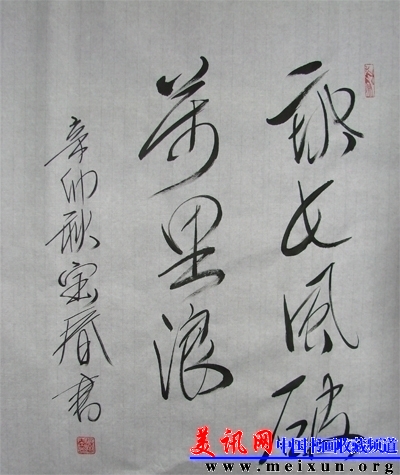 长風破
萬里浪
辛卯秋宝春書
美讯网
中国书画收藏频道
www.meixun.org